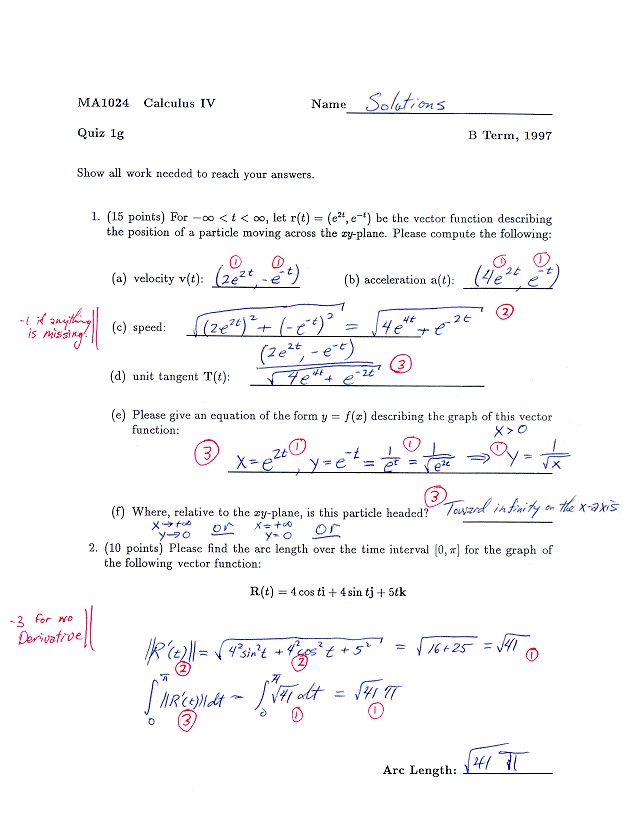 MA1024 Calculus IV Name Solutions
Quiz 1g B Term, 1997
Show all work needed to reach your answers.
1. (15 points) For −∞ < t < ∞, let r(t) = (e^{2t}, e^{−t}) be the vector function describing
the position of a particle moving across the xy-plane. Please compute the following:
① ① ① ①
(a) velocity v(t): (2e^{2t}, −e^{−t}) (b) acceleration a(t): (4e^{2t}, e^{−t})
-1 if anything
is missing!
(c) speed: √((2e^{2t})² + (−e^{−t})²) = √(4e^{4t} + e^{−2t}) ②
(d) unit tangent T(t): (2e^{2t}, −e^{−t}) / √(4e^{4t} + e^{−2t}) ③
(e) Please give an equation of the form y = f(x) describing the graph of this vector
function: x > 0
③ x = e^{2t} ①, y = e^{−t} = 1/e^t ① = 1/√(e^{2t}) ⇒ ① y = 1/√x
③
(f) Where, relative to the xy-plane, is this particle headed? Toward infinity on the x-axis
x→+∞ or x=+∞ or
y→0 y=0
2. (10 points) Please find the arc length over the time interval [0, π] for the graph of
the following vector function:
R(t) = 4 cos ti + 4 sin tj + 5tk
-3 for no
Derivative
||R'(t)|| = √(4² sin² t + 4² cos² t + 5²) = √(16+25) = √41 ①
② ②
∫₀^π ||R'(t)|| dt = ∫₀^π √41 dt = √41 π
③ ① ①
Arc Length: √41 π